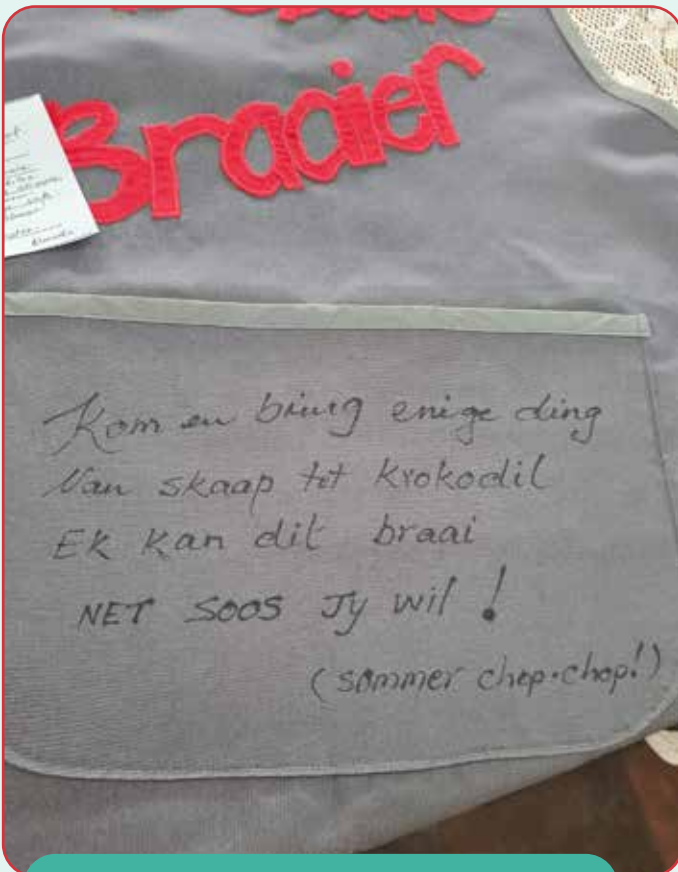 Braaier
Kom en bring enige ding
Van skaap tot krokodil
Ek kan dit braai
NET SOOS Jy wil!
(sommer chop-chop!)